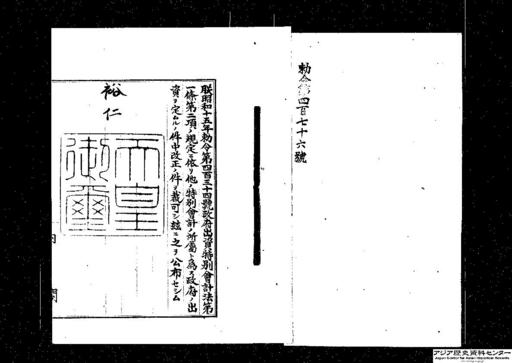 勅令第四百七十六號
朕昭和十五年勅令第四百三十四號政府出資特別會計法第
一條第二項ノ規定ニ依リ他ノ特別會計ノ所屬ト爲ス政府ノ出
資ヲ定ムルノ件中改正ノ件ヲ裁可シ玆ニ之ヲ公布セシム
裕仁
天皇
御璽
内
閣
アジア歴史資料センター
Japan Center for Asian Historical Records